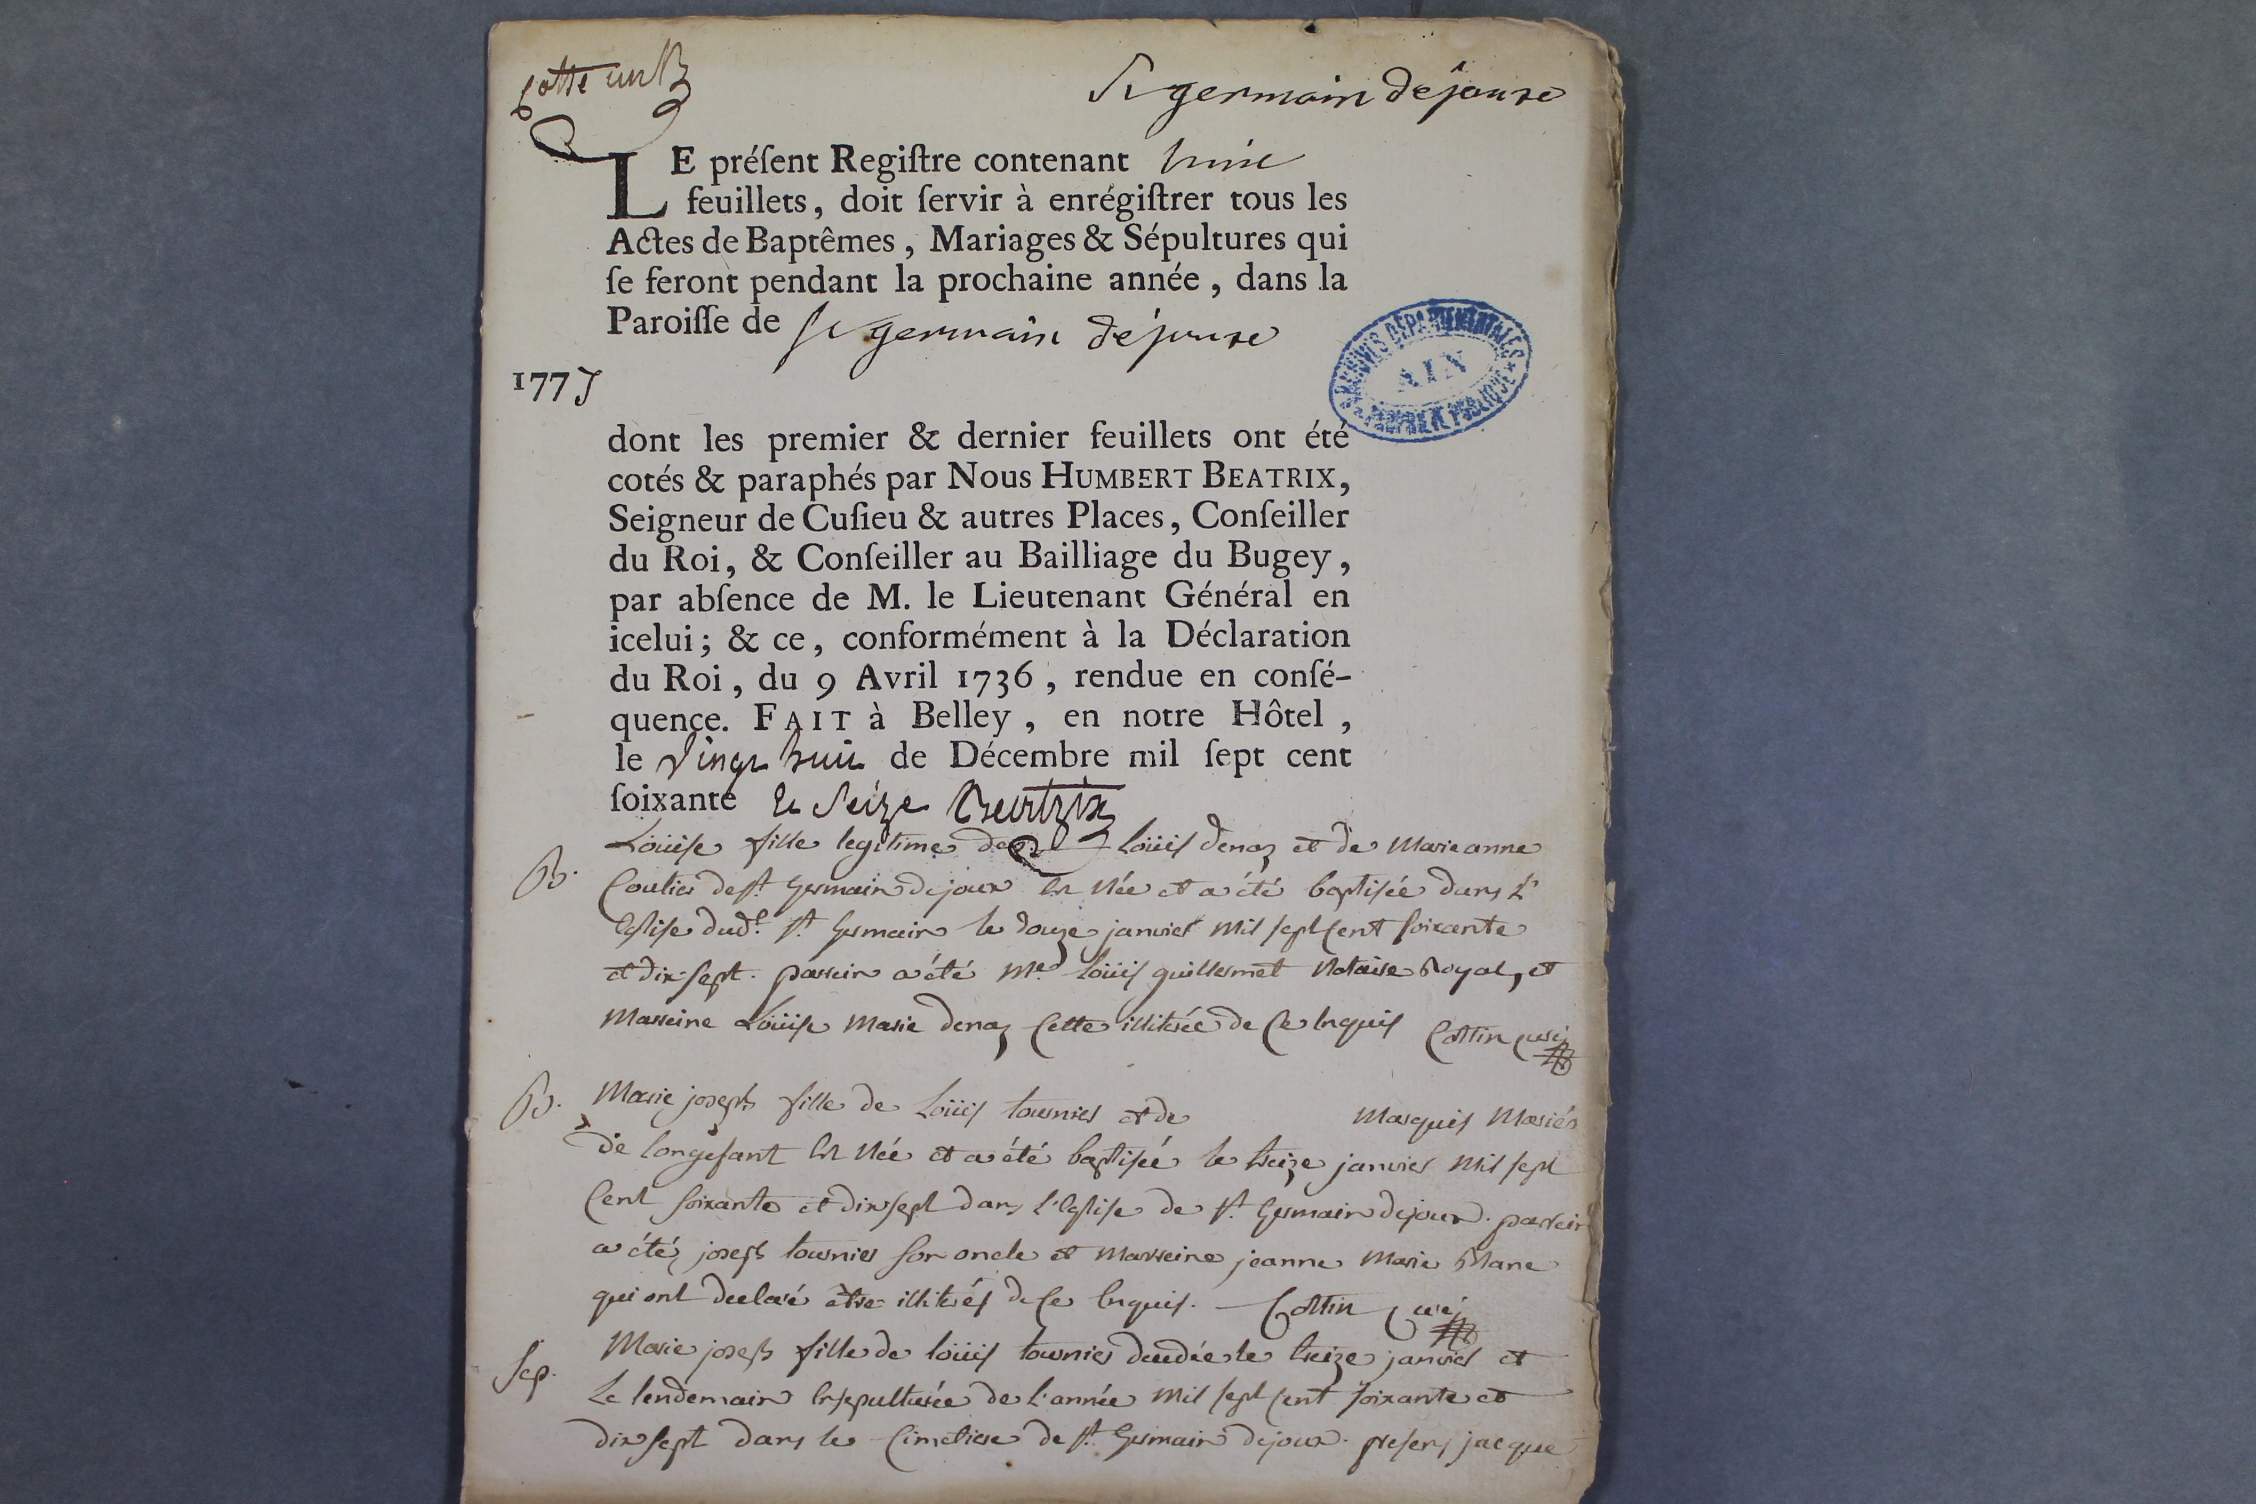 Cotte un B
St germain dejoux
LE préſent Regiſtre contenant huit
feuillets, doit ſervir à enrégiſtrer tous les
Actes de Baptêmes, Mariages & Sépultures qui
ſe feront pendant la prochaine année, dans la
Paroiſſe de St germain dejoux
ARCHIVES DÉPARTEMENTALES
AIN
PROPRIÉTÉ PUBLIQUE
1777
dont les premier & dernier feuillets ont été
cotés & paraphés par Nous HUMBERT BEATRIX,
Seigneur de Cuſieu & autres Places, Conſeiller
du Roi, & Conſeiller au Bailliage du Bugey,
par abſence de M. le Lieutenant Général en
icelui; & ce, conformément à la Déclaration
du Roi, du 9 Avril 1736, rendue en conſé-
quence. FAIT à Belley, en notre Hôtel,
le vingt huit de Décembre mil ſept cent
ſoixante et Seize Beatrix
Loüise fille legitime de Loüis denaz et de Marieanne
B. Coutier de st. Germain dejoux est Née et a été baptisée dans L'
Eglise dud.t st. Germain le douze janvier Mil sept Cent soixante
et dix-sept. parrein a été Me. Loüis guillermet Notaire Royal, et
Marreine Loüise Marie denaz Cette illiterée de Ce Enquis Cottin curé
B. Marie joseph fille de Loüis tournier et de Marquis Mariés
de longefant est Née et a été baptisée le treize janvier Mil sept
Cent soixante et dix sept dans L'Eglise de st. Germain dejoux. parrein
a été joseph tournier son oncle et Marreine jeanne Marie Blanc
qui ont declaré être illiterés de Ce Enquis. Cottin curé
Sep. Marie joseph fille de loüis tournier decedée le treize janvier et
Le lendemain Ensepulturée de l'année Mil sept Cent soixante et
dix sept dans le Cimetiere de st. Germain dejoux. presens jacque